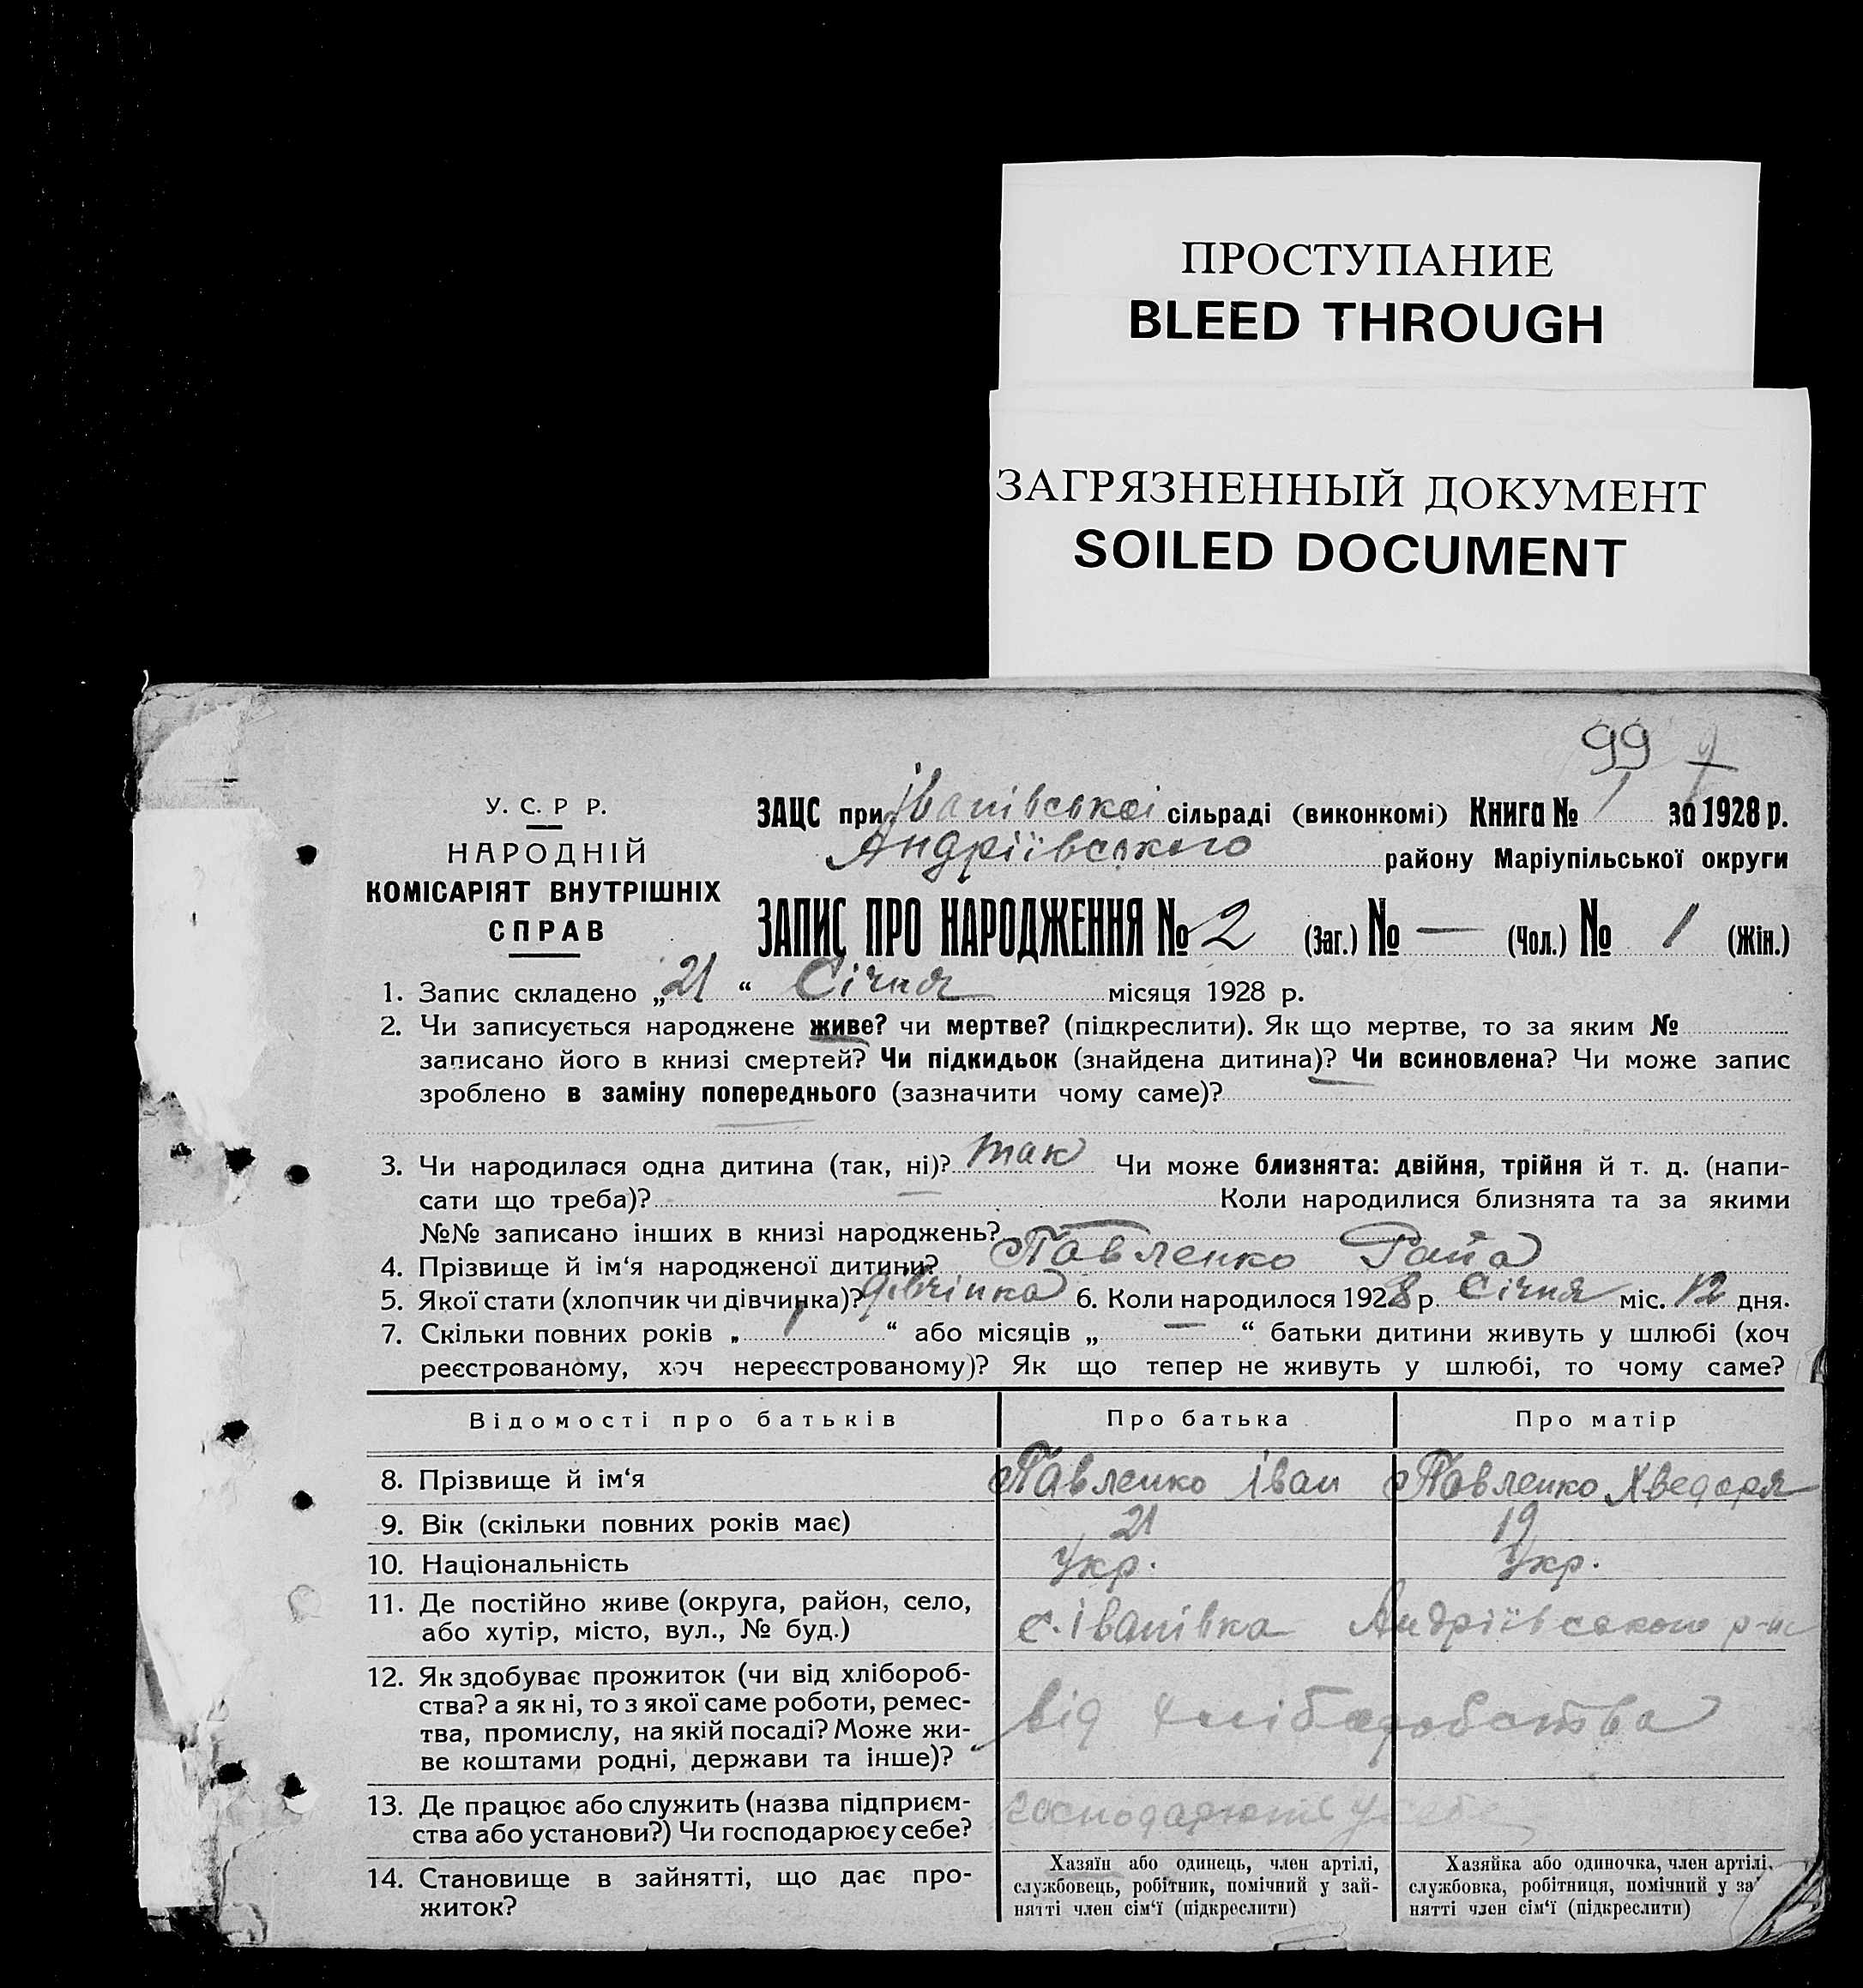 ПРОСТУПАНИЕ
BLEED THROUGH
ЗАГРЯЗНЕННЫЙ ДОКУМЕНТ
SOILED DOCUMENT
99
У. С. Р Р.
НАРОДНІЙ
КОМІСАРІЯТ ВНУТРІШНІХ
СПРАВ
ЗАЦС при Іванівської сільраді (виконкомі) Книга № 1 за 1928 р.
Андріївського району Маріупільської округи
ЗАПИС ПРО НАРОДЖЕННЯ № 2 (Заг.) № — (Чол.) № 1 (Жін.)
1. Запис складено „21“ Січня місяця 1928 р.
2. Чи записується народжене живе? чи мертве? (підкреслити). Як що мертве, то за яким №
записано його в книзі смертей? Чи підкидьок (знайдена дитина)? Чи всиновлена? Чи може запис
зроблено в заміну попереднього (зазначити чому саме)?
3. Чи народилася одна дитина (так, ні)? так Чи може близнята: двійня, трійня й т. д. (напи-
сати що треба)? — Коли народилися близнята та за якими
№№ записано інших в книзі народжень?
4. Прізвище й ім‘я народженої дитини? Павленко Раїа
5. Якої стати (хлопчик чи дівчинка)? дівчінка 6. Коли народилось 1928 р. Січня міс. 12 дня.
7. Скільки повних років „ 1 “ або місяців „ — “ батьки дитини живуть у шлюбі (хоч
реєстрованому, хоч нереєстрованому)? Як що тепер не живуть у шлюбі, то чому саме?
Відомості про батьків Про батька Про матір
8. Прізвище й ім‘я Павленко Іван Павленко Хведоря
9. Вік (скільки повних років має) 21 19
10. Національність Укр. Укр.
11. Де постійно живе (округа, район, село,
або хутір, місто, вул., № буд.) с. Іванівка Андріївського р-ну
12. Як здобуває прожиток (чи від хлібороб-
ства? а як ні, то з якої саме роботи, ремес-
тва, промислу, на якій посаді? Може жи-
ве коштами родні, держави та інше)? від хліборобства
13. Де працює або служить (назва підприєм-
ства або установи?) Чи господарює у себе? господарюють у себе
14. Становище в зайнятті, що дає про-
житок?
Хазяїн або одинець, член артілі,
службовець, робітник, помічний у зай-
нятті член сім‘ї (підкреслити)
Хазяйка або одиночка, член артілі,
службовка, робітниця, помічний у за
нятті член сім‘ї (підкреслити)